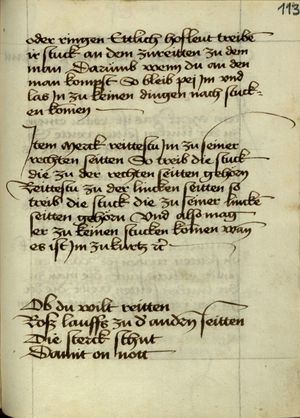 113
oder ringen Ettlich hofleut treibe
ir stuck an dem zureitten zu dem
man Darumb wenn du an den
man kompst So bleib pej Im vnd
las In zu keinen dingen nach stuck-
en komen
Item Merck reittestu Im zu seiner
rechten seitten So treib die stuck
die zu der rechten seitten gehorn
Reittestu zu der lincken seitten so
treib die stuck die zu seiner lincke
seitten gehorn Vnd also mag
er zu keinen stucken komen wan
es ist Im zu kurtz etc
Ob du wilt reitten
Rosz lauffs zu d' andern seitten
Die sterck schut
Damit on nott